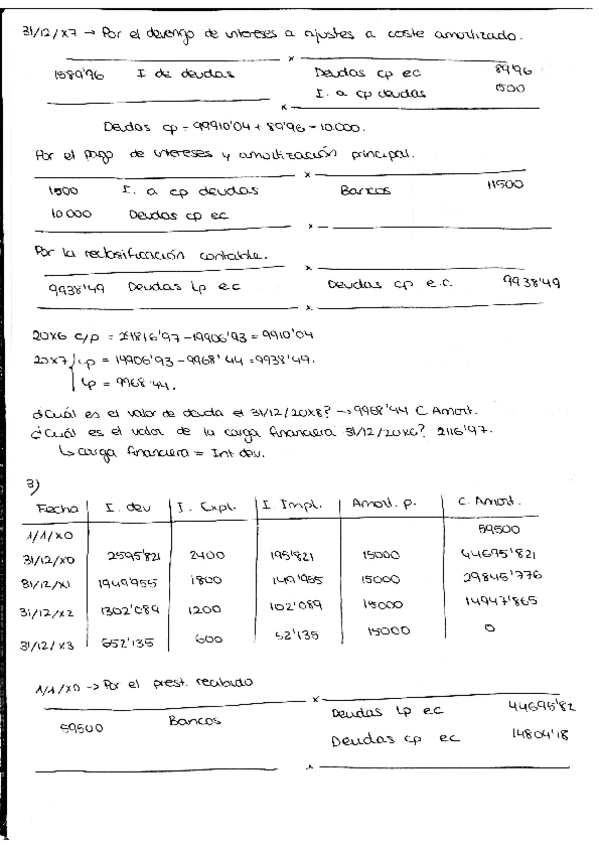 31/12/x7 → Por el devengo de intereses a ajustes a coste amortizado.
x
1589'96 I de deudas Deudas cp ec 89'96
I. a cp deudas 1500
x
Deudas cp = 99910'04 + 89'96 - 10.000.
Por el pago de intereses y amortización principal.
x
1500 I. a cp deudas Bancos 11500
10000 Deudas cp ec
x
Por la reclasificación contable.
x
9938'49 Deudas lp ec Deudas cp e.c. 9938'49
x
20x6 c/p = 29816'97 - 19906'93 = 9910'04
20x7 cp = 19906'93 - 9968'44 = 9938'49.
lp = 9968'44.
¿Cuál es el valor de deuda el 31/12/20x8? → 9968'44 C. Amort.
¿Cuál es el valor de la carga financiera 31/12/20x6? 2116'97.
↳ Carga financiera = Int dev.
3)
Fecha I. dev I. Expl. I. Impl. Amort. p. C. Amort.
1/1/x0 59500
31/12/x0 2595'821 2400 195'821 15000 44695'821
31/12/x1 1949'955 1800 149'955 15000 29845'776
31/12/x2 1302'089 1200 102'089 15000 14947'865
31/12/x3 652'135 600 52'135 15000 0
1/1/x0 → Por el prest. recibido
x
59500 Bancos Deudas lp ec 44695'82
Deudas cp ec 14804'18
x